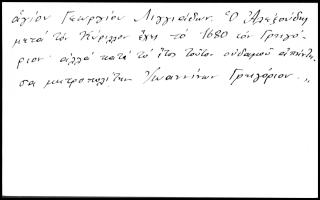 ἁγίου Γεωργίου Λιγγιάδων. Ὁ Ἀλεξούδης
μετά τόν Κύριλλον ἔχει τό 1680 τόν Γρηγό-
ριον· ἀλλά κατά τό ἔτος τοῦτον οὐδαμοῦ
σα μητροπολίτην Ἰωαννίνων Γρηγόριον.